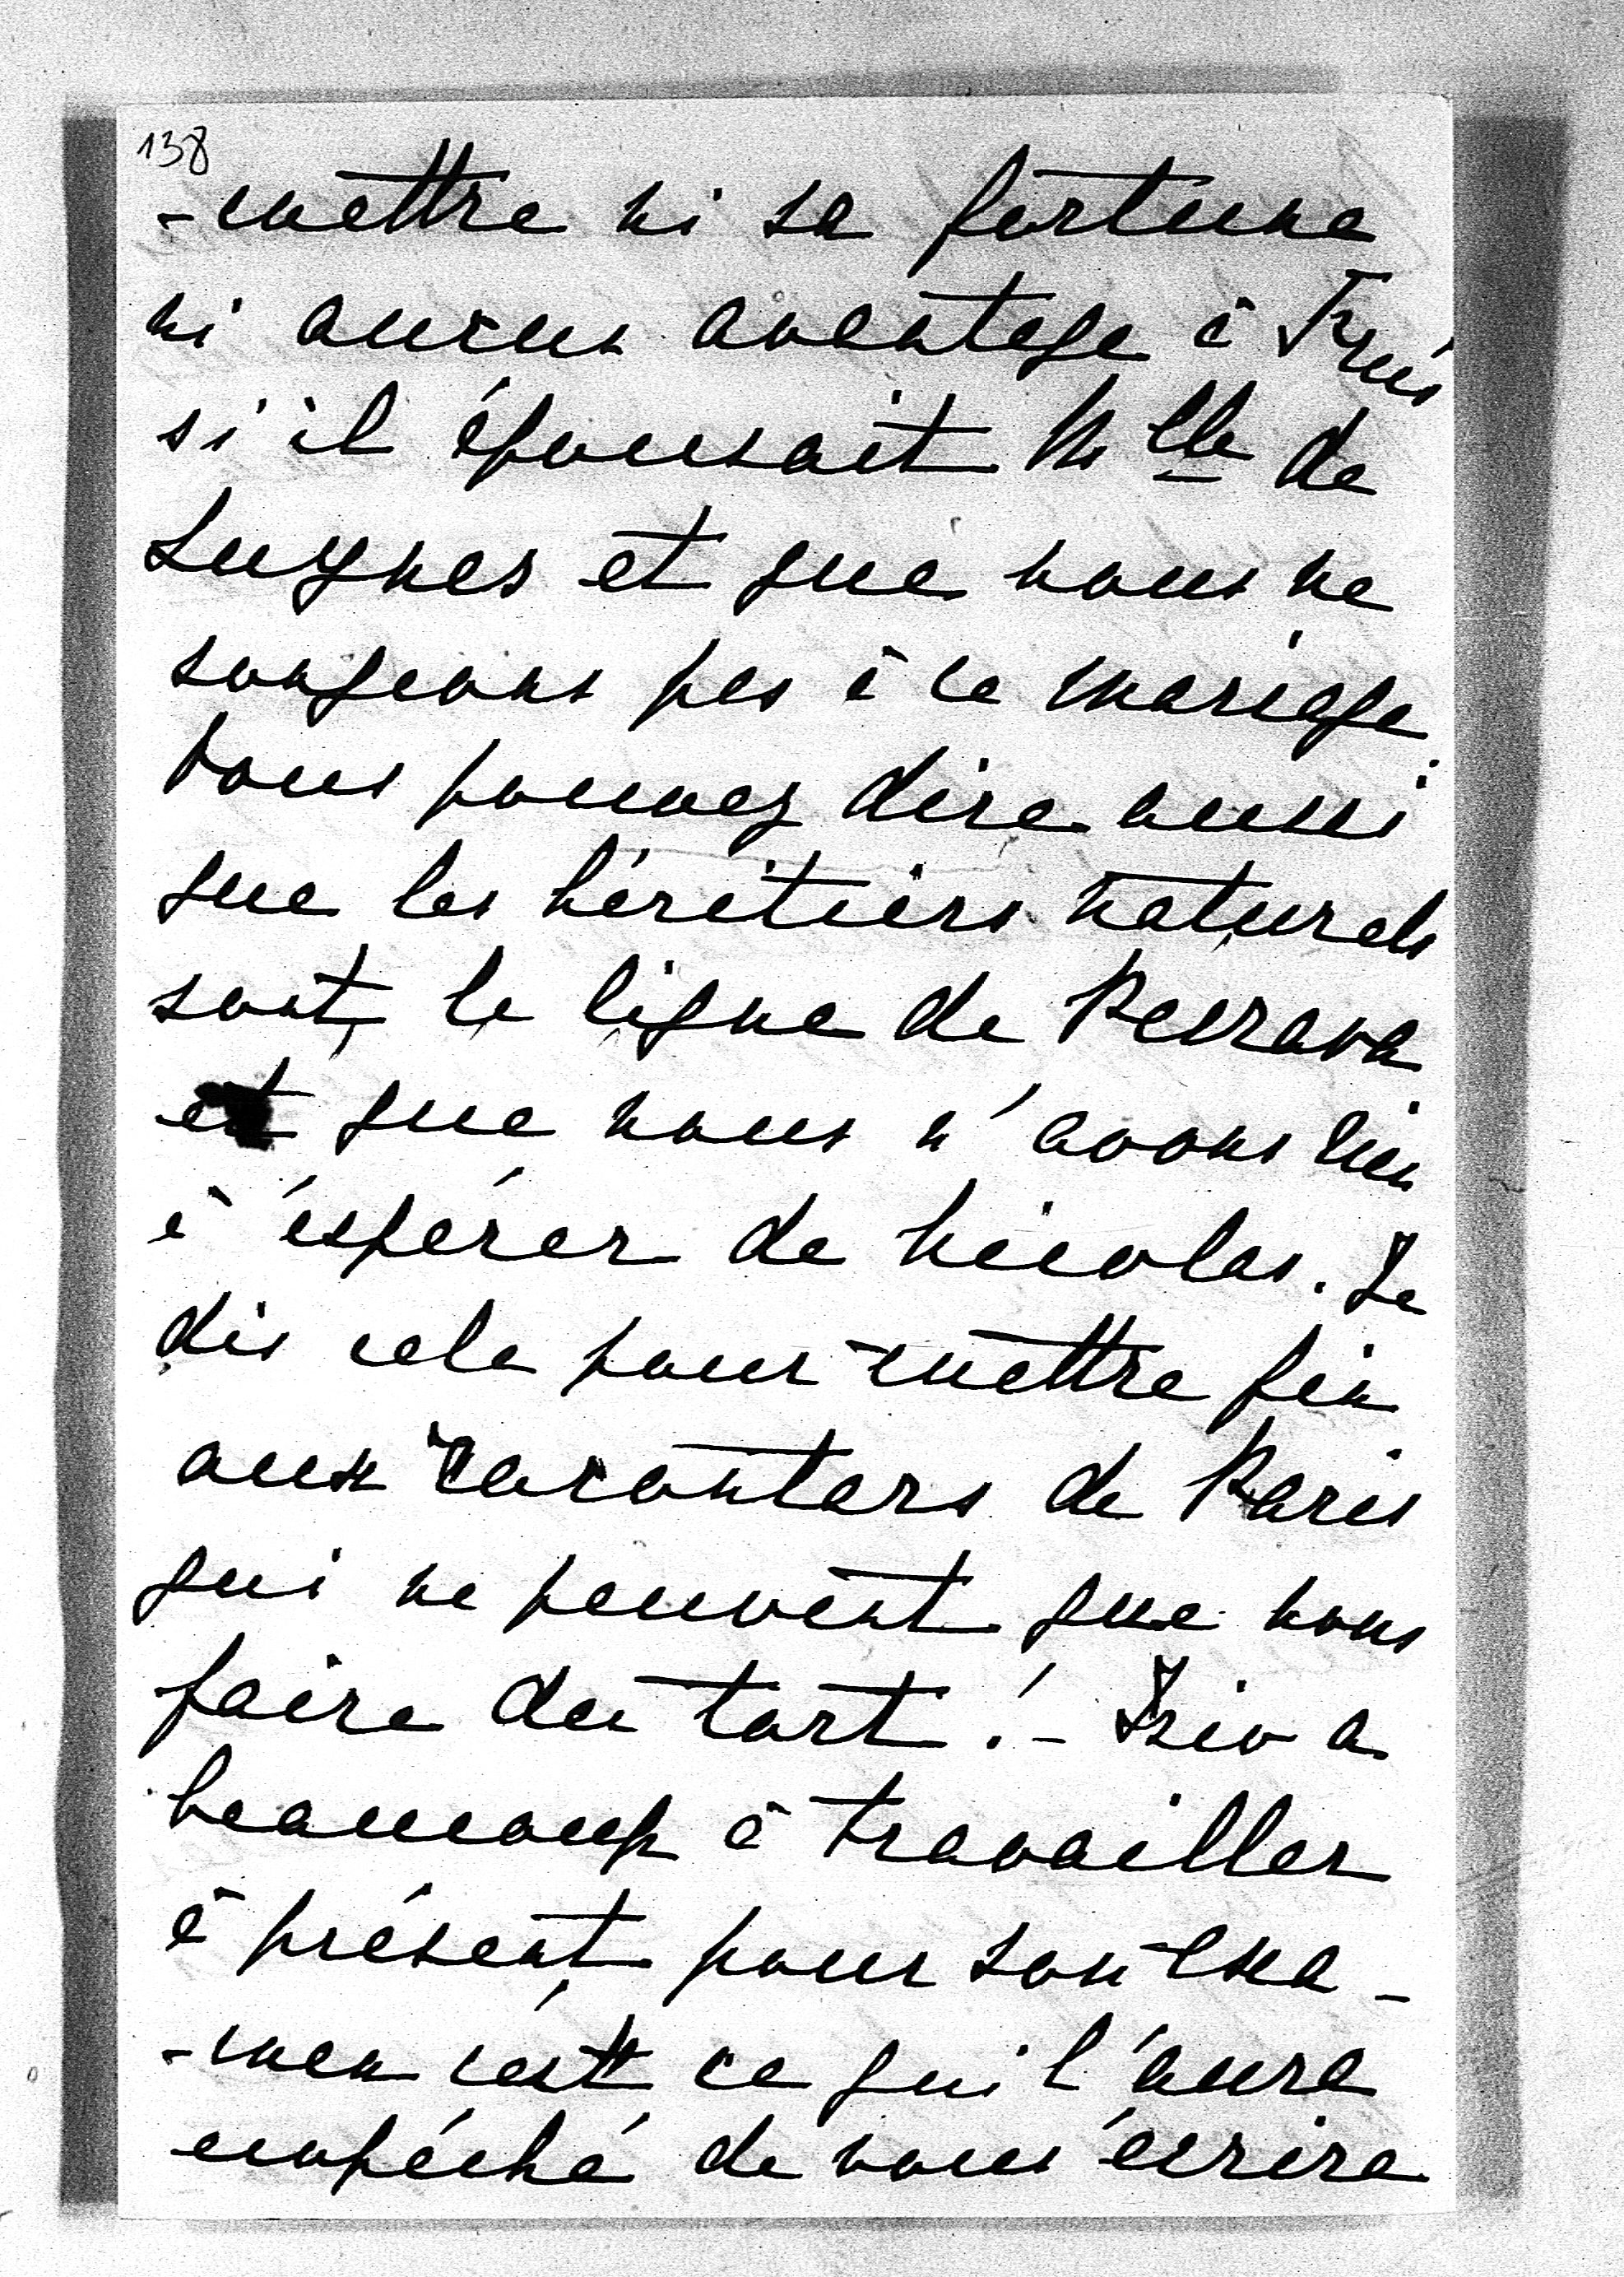 138
-mettre ni sa fortune
ni aucun avantage à
si'il épousait Mlle de
Luynes et que nous ne
songeons pas à ce mariage.
Vous pouvez dire aussi
que les héritiers naturels
sont la ligne de
et que nous n'avons rien
à éspérer de Nicolas. Je
dis cela pour mettre fin
aux racontars de Paris
qui ne peuvent que nous
faire du tort! - a
beaucoup à travailler
à présent pour son exa-
-men c'est ce qui l'aura
empéché de vous écrire